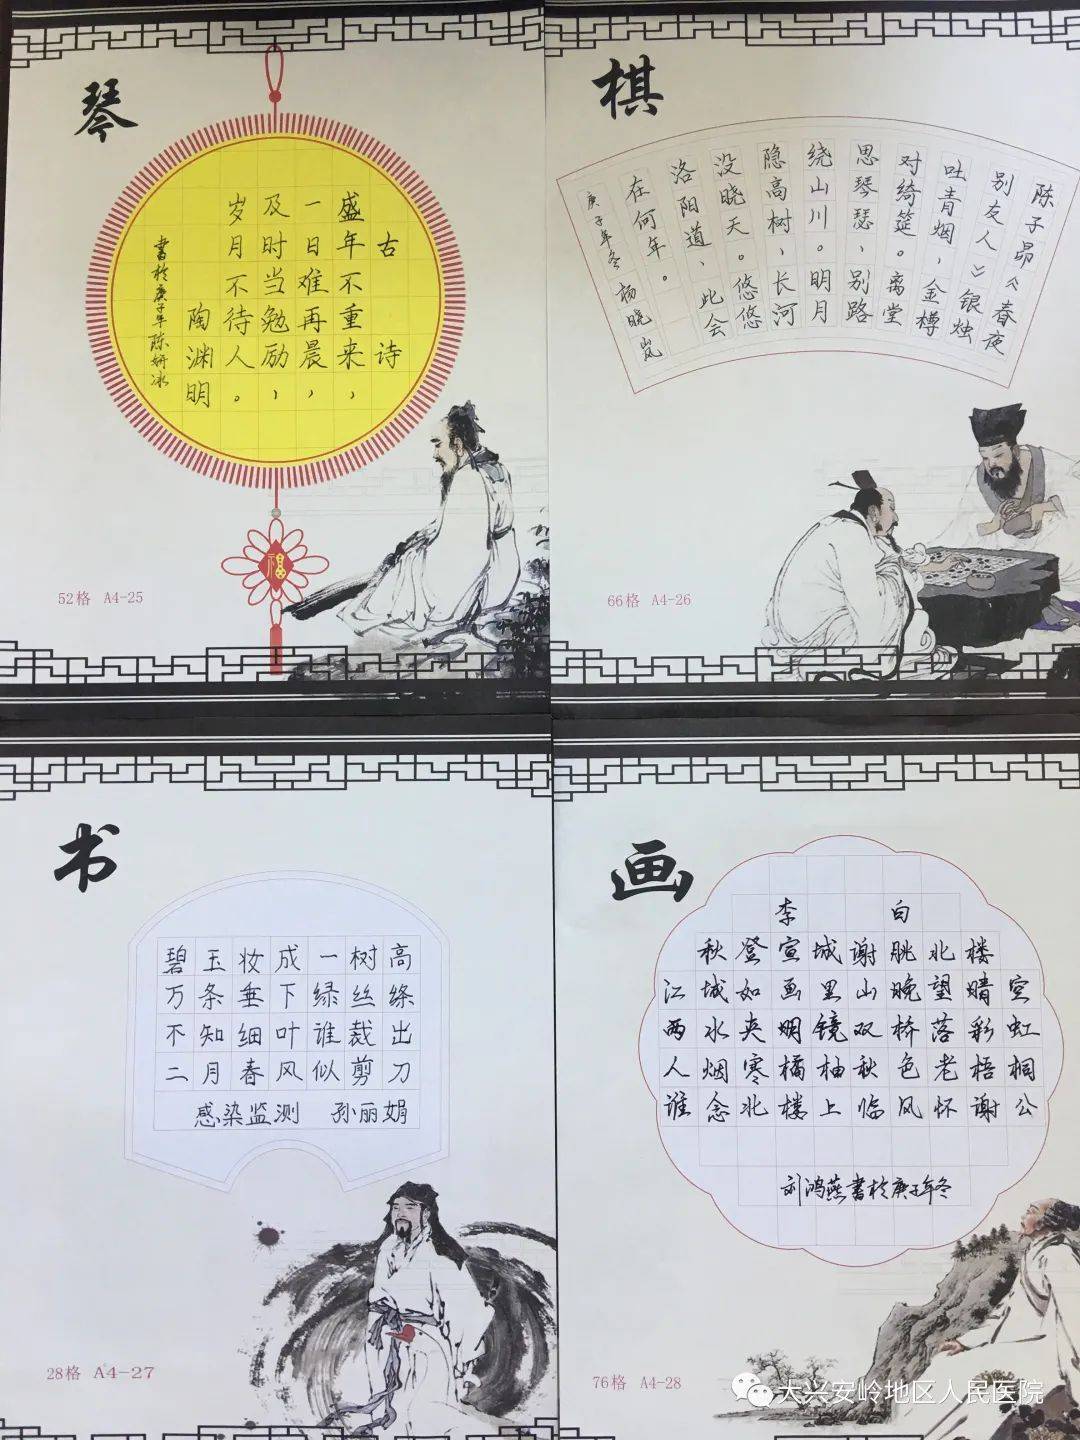 琴
古诗
盛年不重来,
一日难再晨,
及时当勉励,
岁月不待人。
陶渊明
書於庚子年陈妍冰
福
52格 A4-25
棋
陈子昂《春夜
别友人》银烛
吐青烟、金樽
对绮筵。离堂
思琴瑟、别路
绕山川。明月
隐高树,长河
没晓天。悠悠
洛阳道、此会
在何年。
庚子年冬 杨晓岚
66格 A4-26
书
碧玉妆成一树高
万条垂下绿丝绦
不知细叶谁裁出
二月春风似剪刀
感染监测 孙丽娟
28格 A4-27
画
李白
秋登宣城谢朓北楼
江城如画里山晚望晴空
两水夹明镜双桥落彩虹
人烟寒橘柚秋色老梧桐
谁念北楼上临风怀谢公
刘鸿燕書於庚子年冬
76格 A4-28
大兴安岭地区人民医院